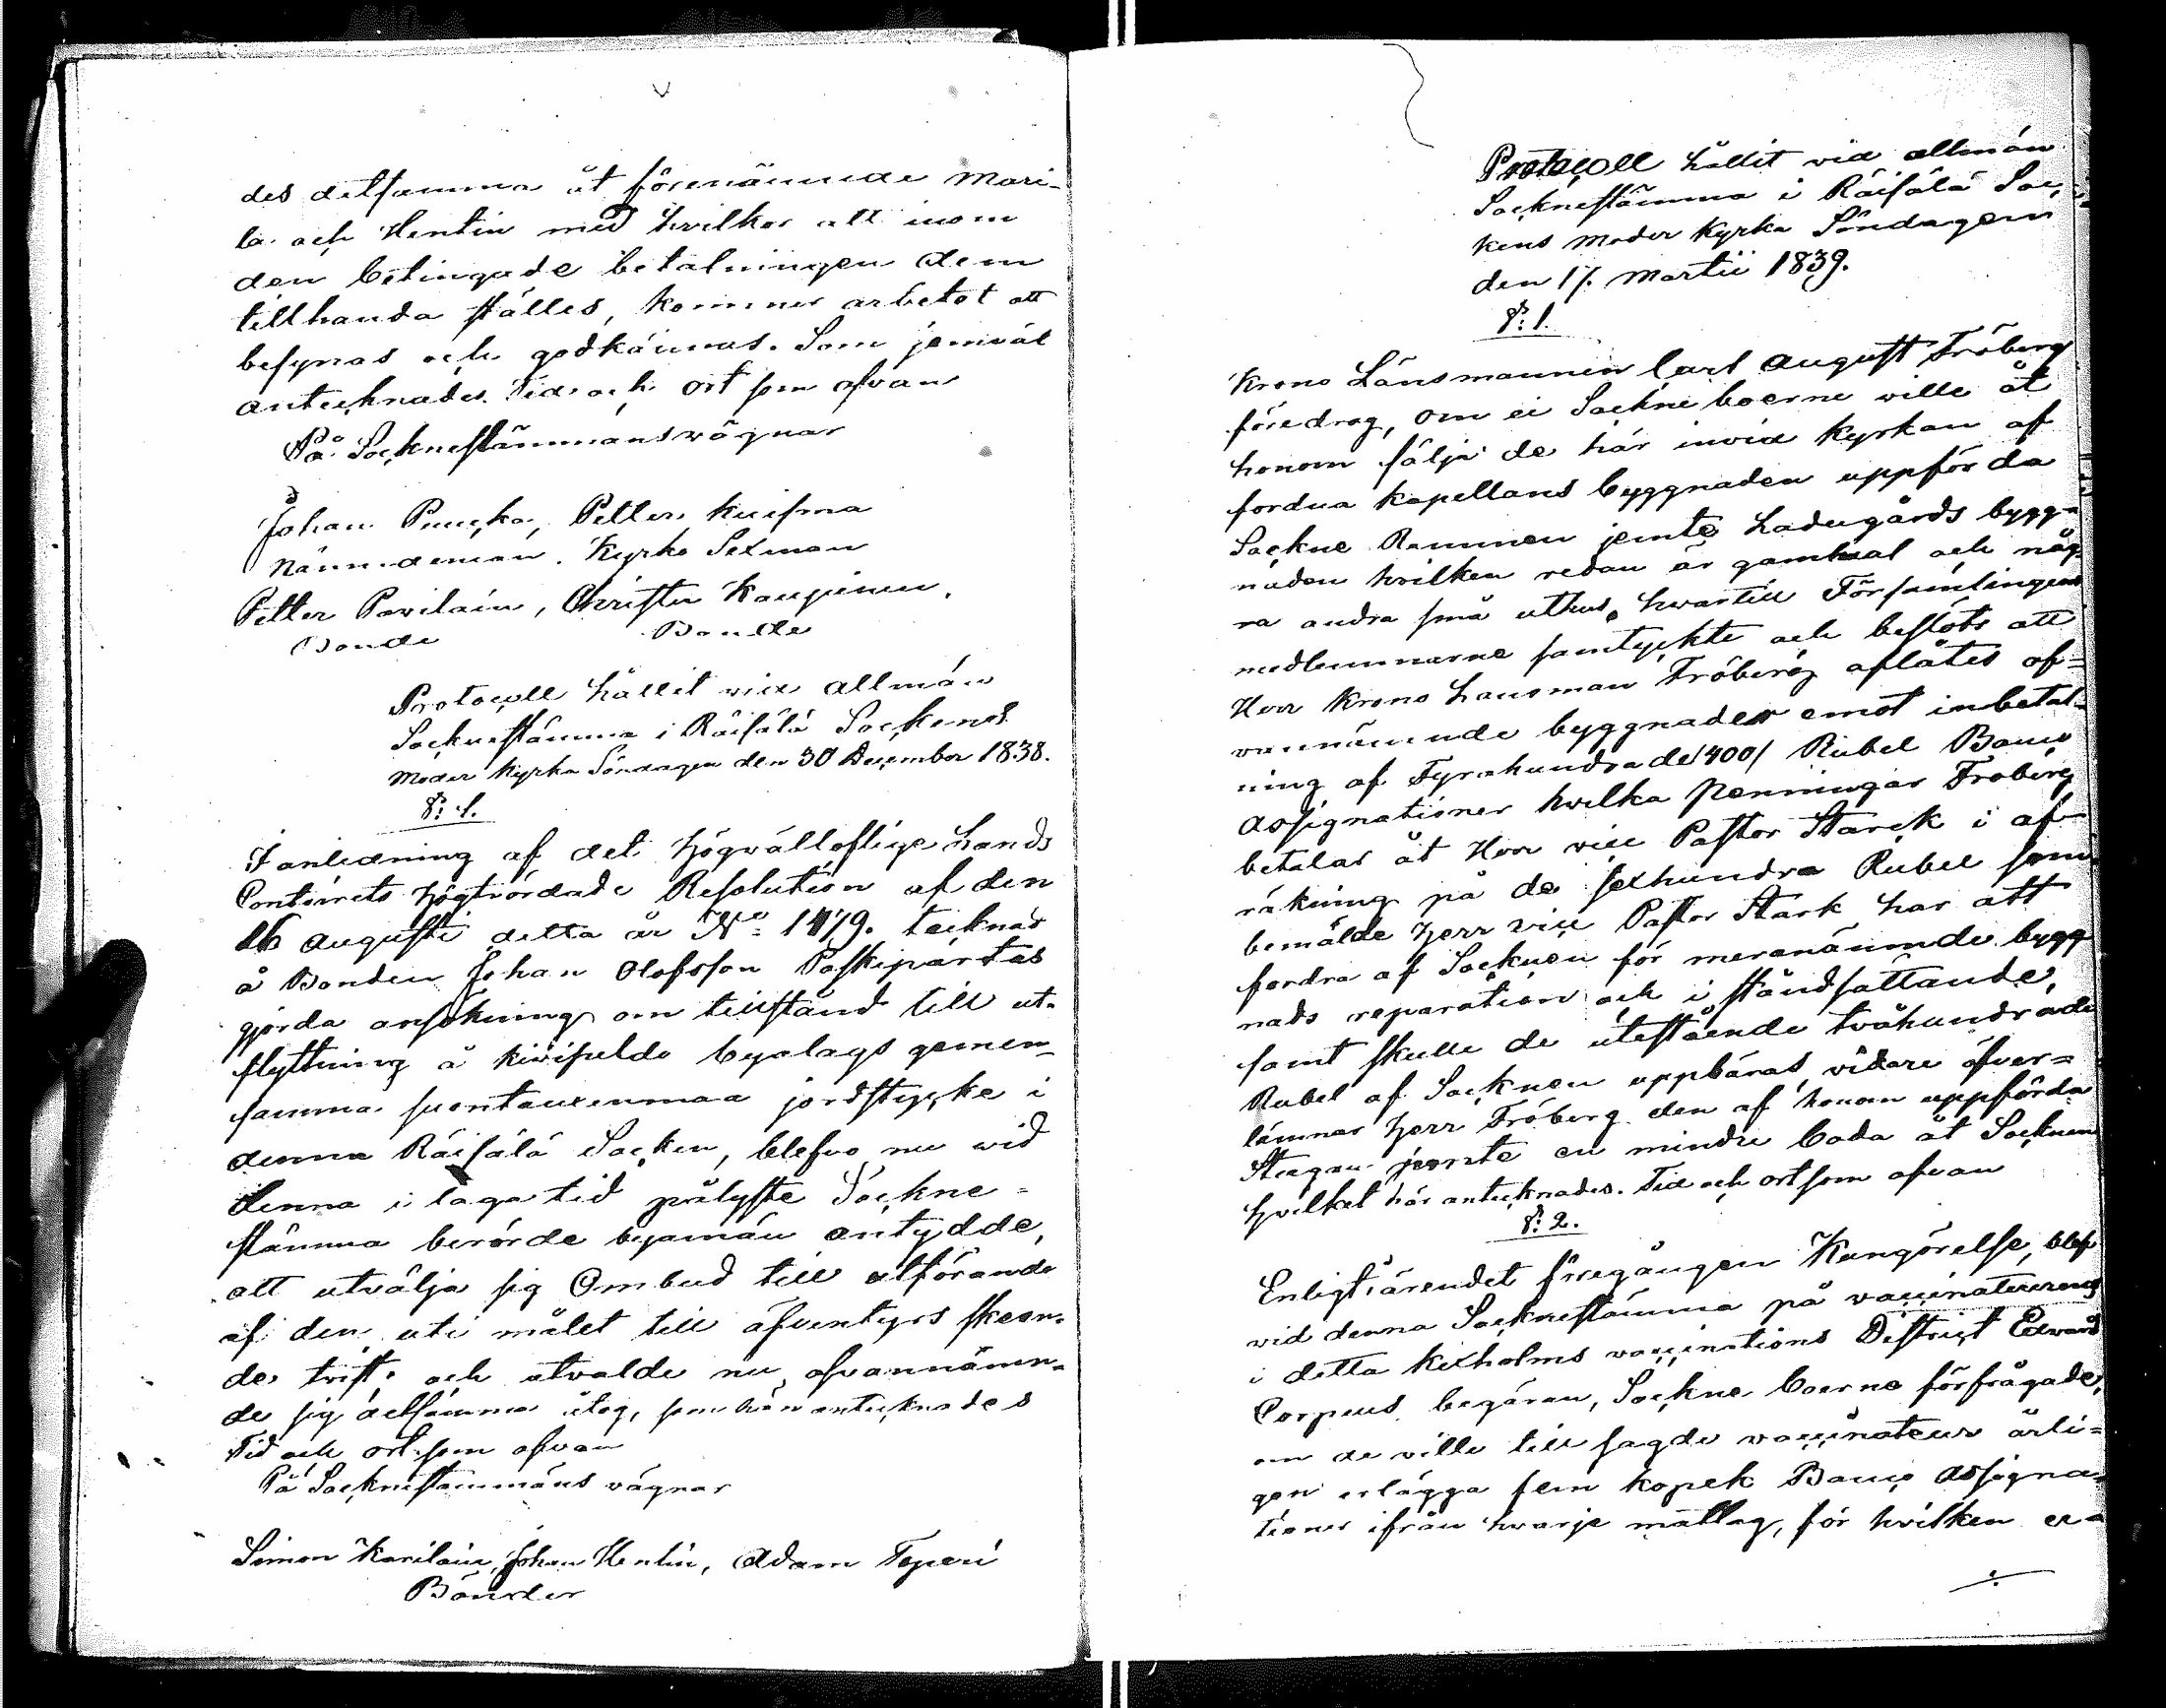 des detsamma åt förenämnde Mari-
la och Hentin med hvilkor att inom
den betingade betalningen dem
tillhanda ställes, kommer arbetet att
besynas och godkännas. Som jemväl
antecknades. Tid och ort som ofvan
På Socknestämmans vägnar
Johan Puucka, Petter Kuisma
Nämndeman. Kyrko Sexman
Petter Pavilain, Christer Kaupinen,
Bonde Bonde
Protocoll hållit vid allmän
Socknestämma i Räisälä Sockens
Moder Kyrka Söndagen den 30 December 1838.
§: 1.
I anledning af det Högvälloflige Lands
Contoirets högtvördade Resolution af den
16 Augusti detta år No: 1479. tecknad
å Bonden Johan Olofsson Paskipartas
gjorda ansökning om tillstånd till ut-
flyttning å Kivipeldo byalags gemen-
samma Suontauxenmaa jordstycke i
denna Räisälä Socken, blefvo nu vid
denna i laga tid pålyste Sockne-
stämma berörde byamän antydde,
att utvälja sig Ombud till utförande
af den uti målet till äfventyrs skeen-
de tvist, och utvalde nu ofvannämn-
de sig detsamma åtog, som här antecknades
Tid och ort som ofvan
På Socknestämmans vägnar
Simon Karilain, Johan Hentin, Adam Toperi
Bönder
Protocoll hållit vid allmän
Socknestämma i Räisälä Soc-
kens Moder Kyrka Söndagen
den 17. Martii 1839.
§: 1.
Krono Länsmannen Carl August Fröberg
föredrog, om ej Sockneboerne ville åt
honom sälja de här invid Kyrkan af
fordna Kapellans byggnaden uppförda
Sockne Rummen jemte Ladugårds bygg-
naden hvilken redan är gammal och någ-
ra andra små uthus, hvartill Församlingens
medlemmarne samtyckte och beslöts att
Herr Krono Lansman Fröberg aflåtes of-
vannämnde byggnader emot inbetal-
ning af Fyrahundrade /400/ Rubel Banco
Assignationer hvilka penningar Fröberg
betalar åt Herr vice Pastor Starck i af-
räkning på de sexhundra Rubel som
bemälde Herr vice Pastor Stark har att
fordra af Socknen för meranämnde bygg-
nads reparation och i ståndsättande,
samt skulle de utestående tvåhundrade
Rubel af Socknen uppbäras, vidare öfver-
lämnar Herr Fröberg den af honom uppförda
Stugan jemte en mindre boda åt Socknen
hvilket här antecknades. Tid och ort som ofvan
§: 2.
Enligt ärendet föregången Kungörelse, blef
vid denna Socknestämma på vaccinateurens
i detta Kexholms vaccinations District Edvard
Corpeus begäran, Sockne boerne förfrågade,
om de ville till sagde vaccinateur årli-
gen erlägga fem kopek Banco Assigna-
tioner ifrån hvarje matlag, för hvilken er-